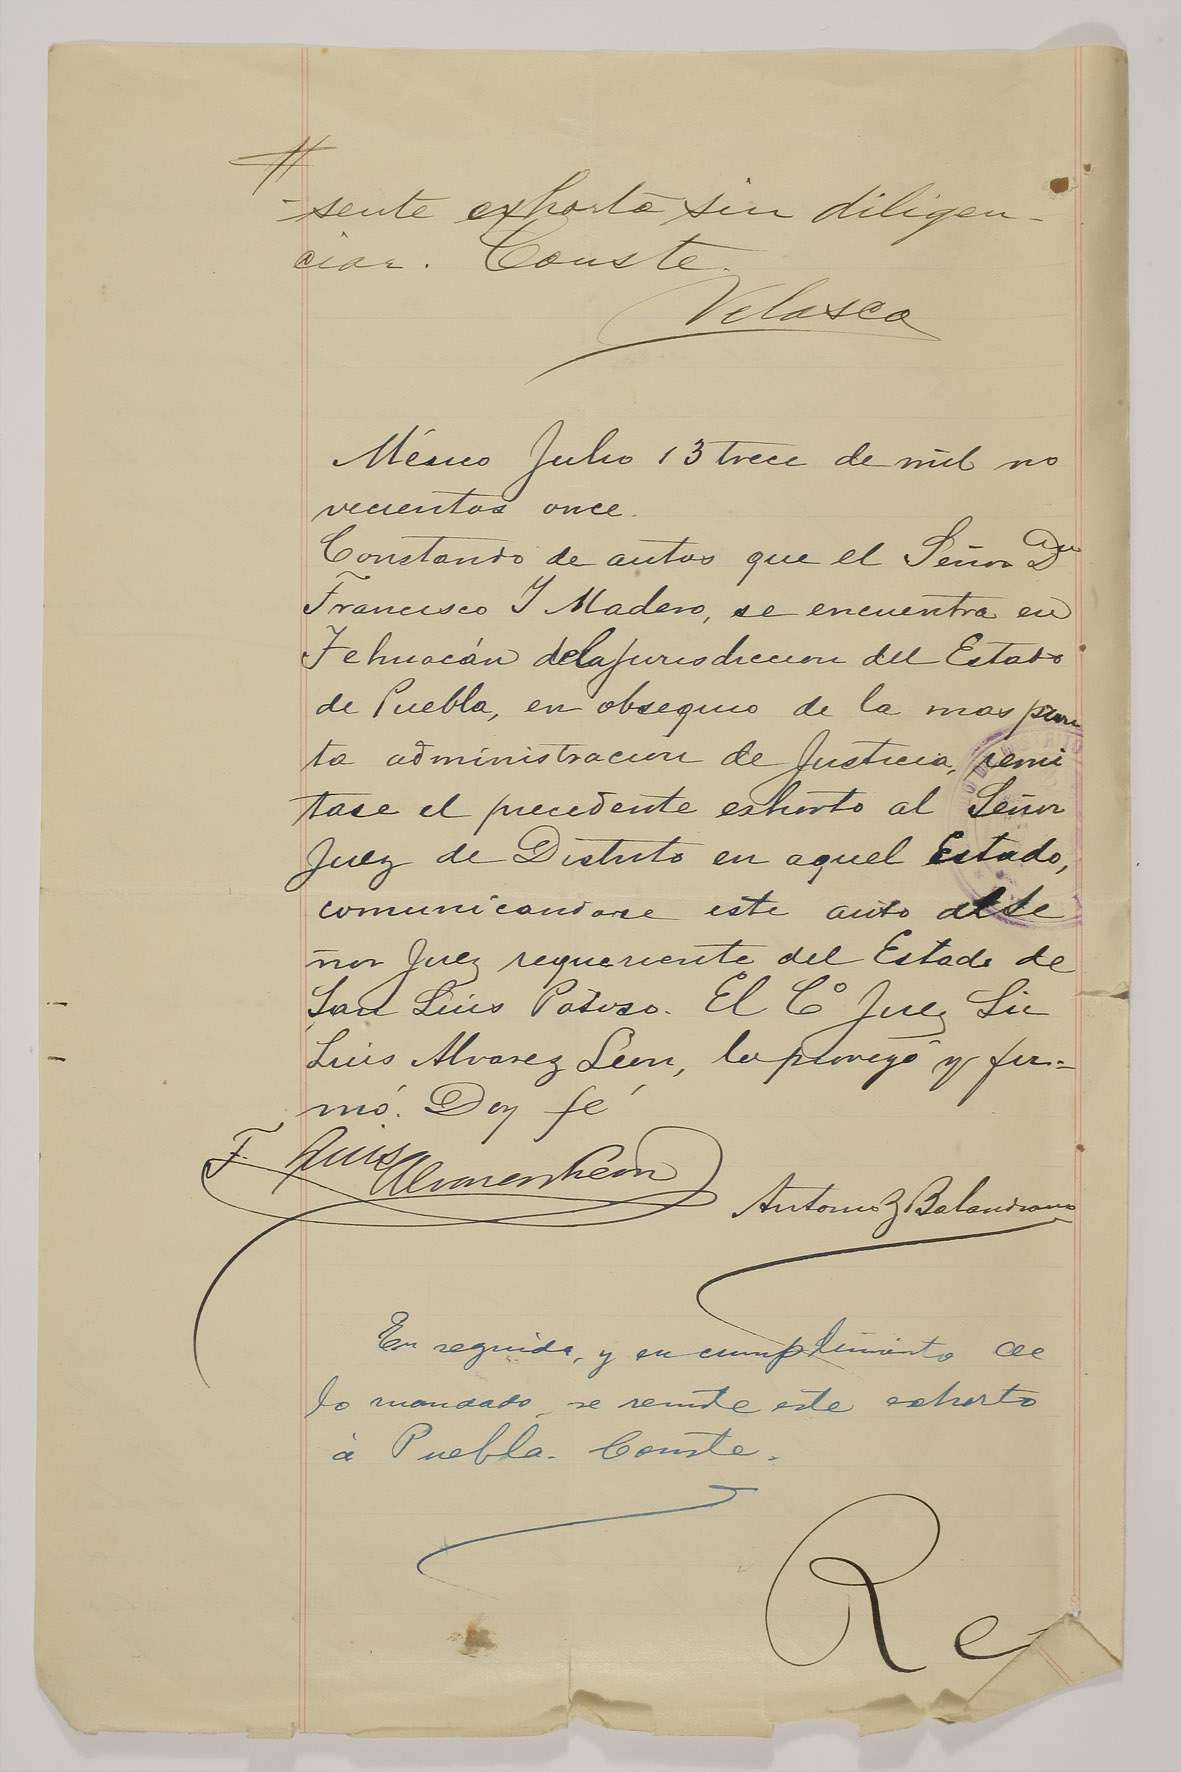 -sente exhorto sin diligen-
ciar. Conste.
Velasco
México Julio 13 trece de mil no
vecientos once.
Constando de autos que el Señor Dn
Francisco I Madero, se encuentra en
Tehuacán de la jurisdiccion del Estado
de Puebla, en obsequio de la mas pron
ta administracion de Justicia, remi
tase el precedente exhorto al Señor
Juez de Distrito en aquel Estado,
comunicandose este auto al Se
ñor Juez requeriente del Estado de
San Luis Potosi. El Cº Juez Lic
Luis Alvarez Leon, lo proveyó y fir=
mó. Doy fé
F. Luis Alvarez Leon
Antonio Z Balandrano
En seguida, y en cumplimiento de
lo mandado, se remite este exhorto
á Puebla. Conste.
Re